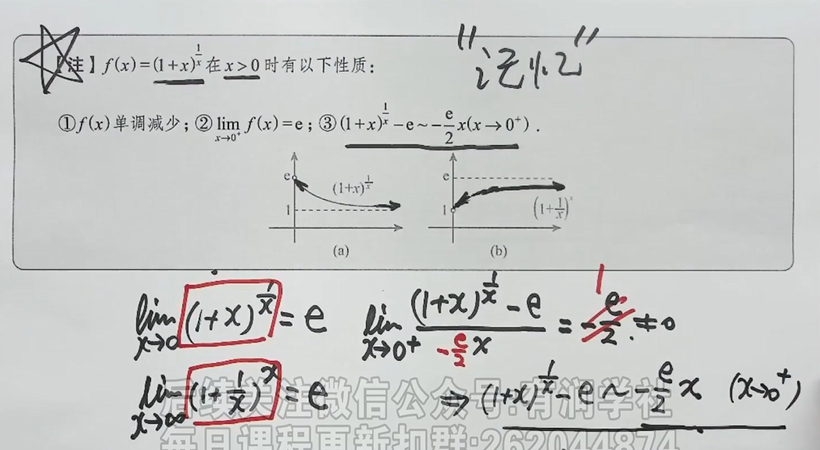 “记忆”
【注】f(x)=(1+x)^{\frac{1}{x}}在x>0时有以下性质：
①f(x)单调减少；②\lim_{x→0^+} f(x)=e；③(1+x)^{\frac{1}{x}}-e~-\frac{e}{2}x(x→0^+).
e
(1+x)^{\frac{1}{x}}
1
(a)
e
1
(1+\frac{1}{x})^x
(b)
\lim_{x→0}(1+x)^{\frac{1}{x}}=e
\lim_{x→0^+}\frac{(1+x)^{\frac{1}{x}}-e}{-\frac{e}{2}x}=-\frac{e}{2}.≠0
1
\lim_{x→∞}(1+\frac{1}{x})^x=e
⇒(1+x)^{\frac{1}{x}}-e~-\frac{e}{2}x (x→0^+)
后续关注微信公众号:有润学社
每日课程更新扣群:262044874